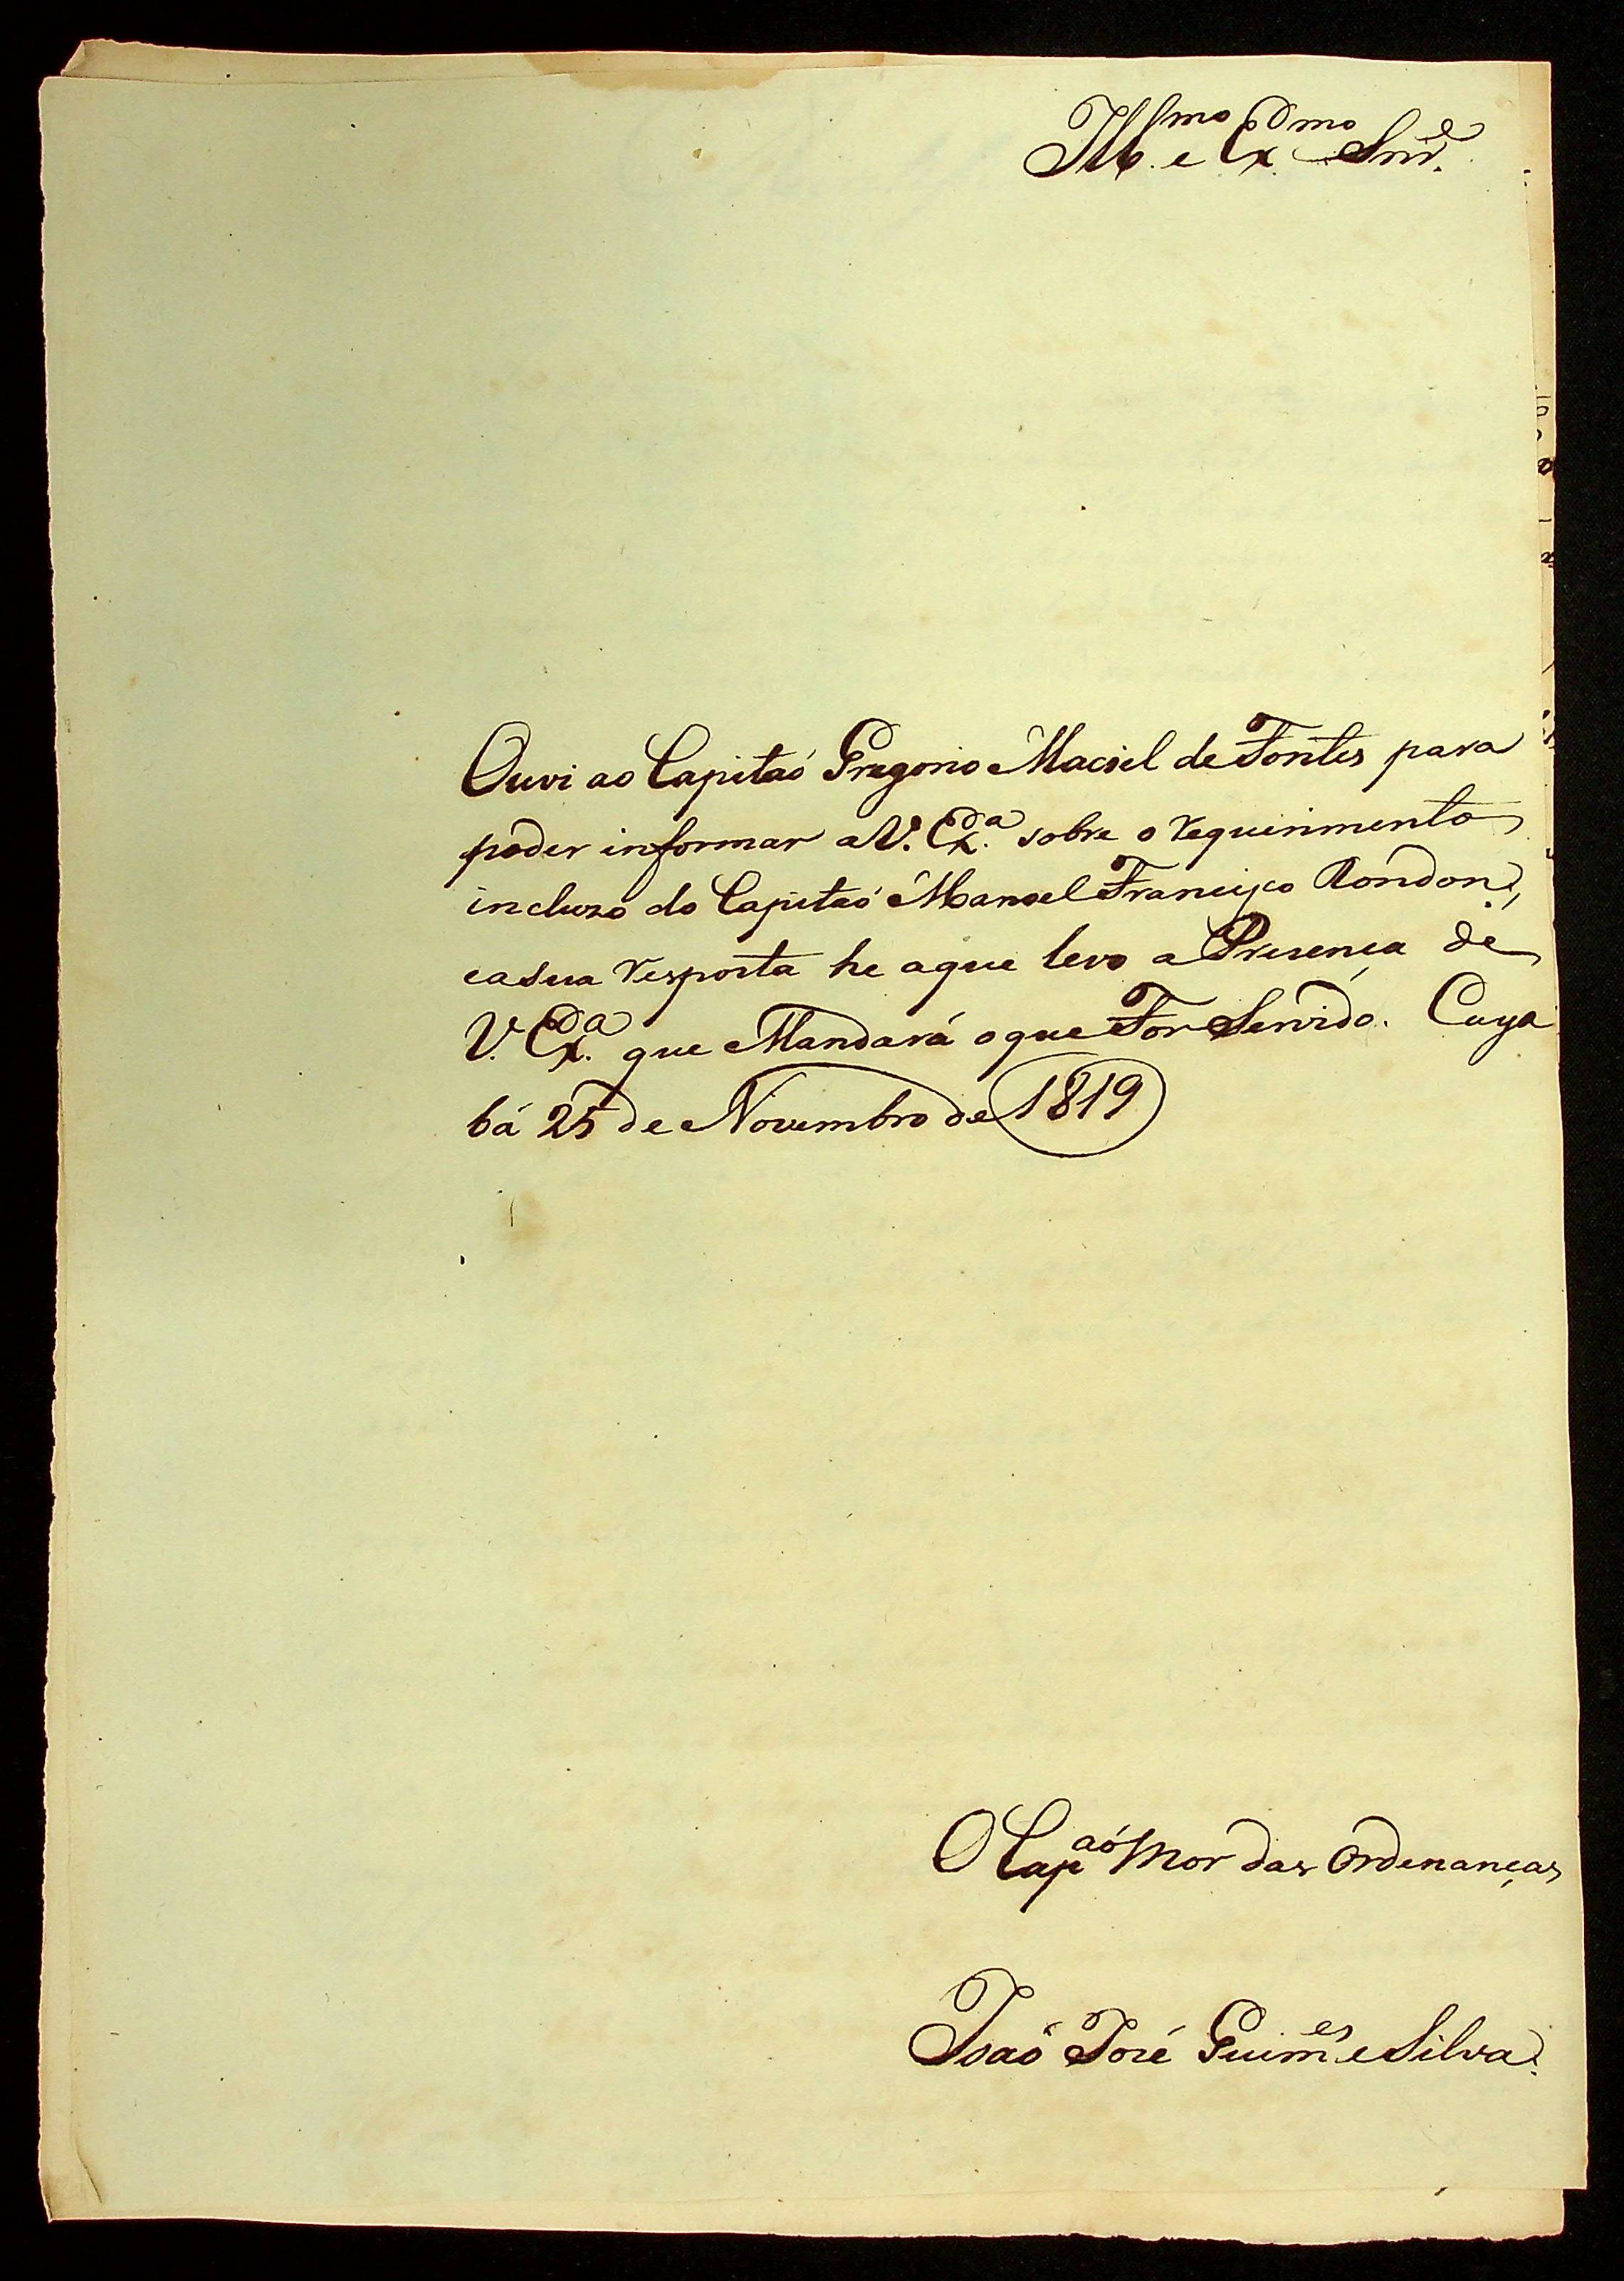 Ill.mo e Ex.mo Snr.
Ouvi ao Capitaõ Gregorio Maciel de Fontes para
poder informar a V. Ex.a sobre o requerimento
incluzo do Capitaõ Manoel Francisco Rondon,
e a sua resposta he a que levo a Prezença de
V. Ex.a que Mandará o que For Servido. Cuya
bá 25 de Novembro de 1819
O Cap.aõ Mor das Ordenanças
Joaõ José Guim.es e Silva.